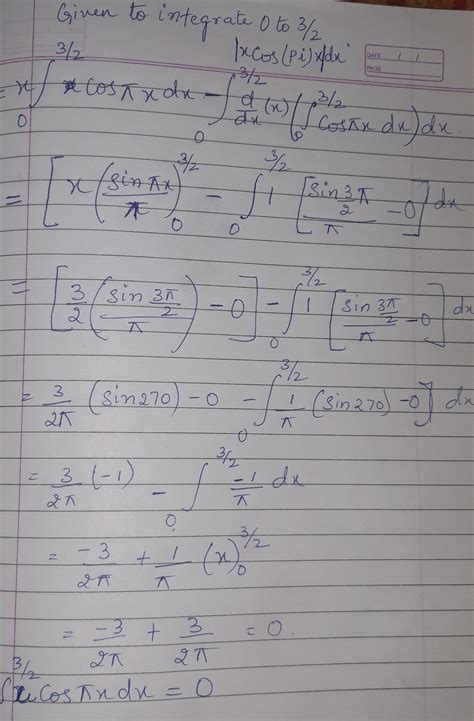 Given to integrate 0 to 3/2
|x cos(Pi)x|dx
DATE
PAGE
= x ∫₀^{3/2} x cos πx dx − ∫₀^{3/2} d/dx (x) (∫₀^{3/2} cos πx dx) dx.
= [x (sin πx / π)₀^{3/2} − ∫₀^{3/2} 1 [sin 3π/2 / π − 0] dx
= [3/2 (sin 3π/2 / π) − 0] − ∫₀^{3/2} 1 [sin 3π/2 / π − 0] dx
= 3/2π (sin 270) − 0 − ∫₀^{3/2} 1/π (sin 270) − 0] dx
= 3/2π (−1) − ∫₀^{3/2} −1/π dx
= −3/2π + 1/π (x)₀^{3/2}
= −3/2π + 3/2π = 0.
∫^{3/2} x cos πx dx = 0